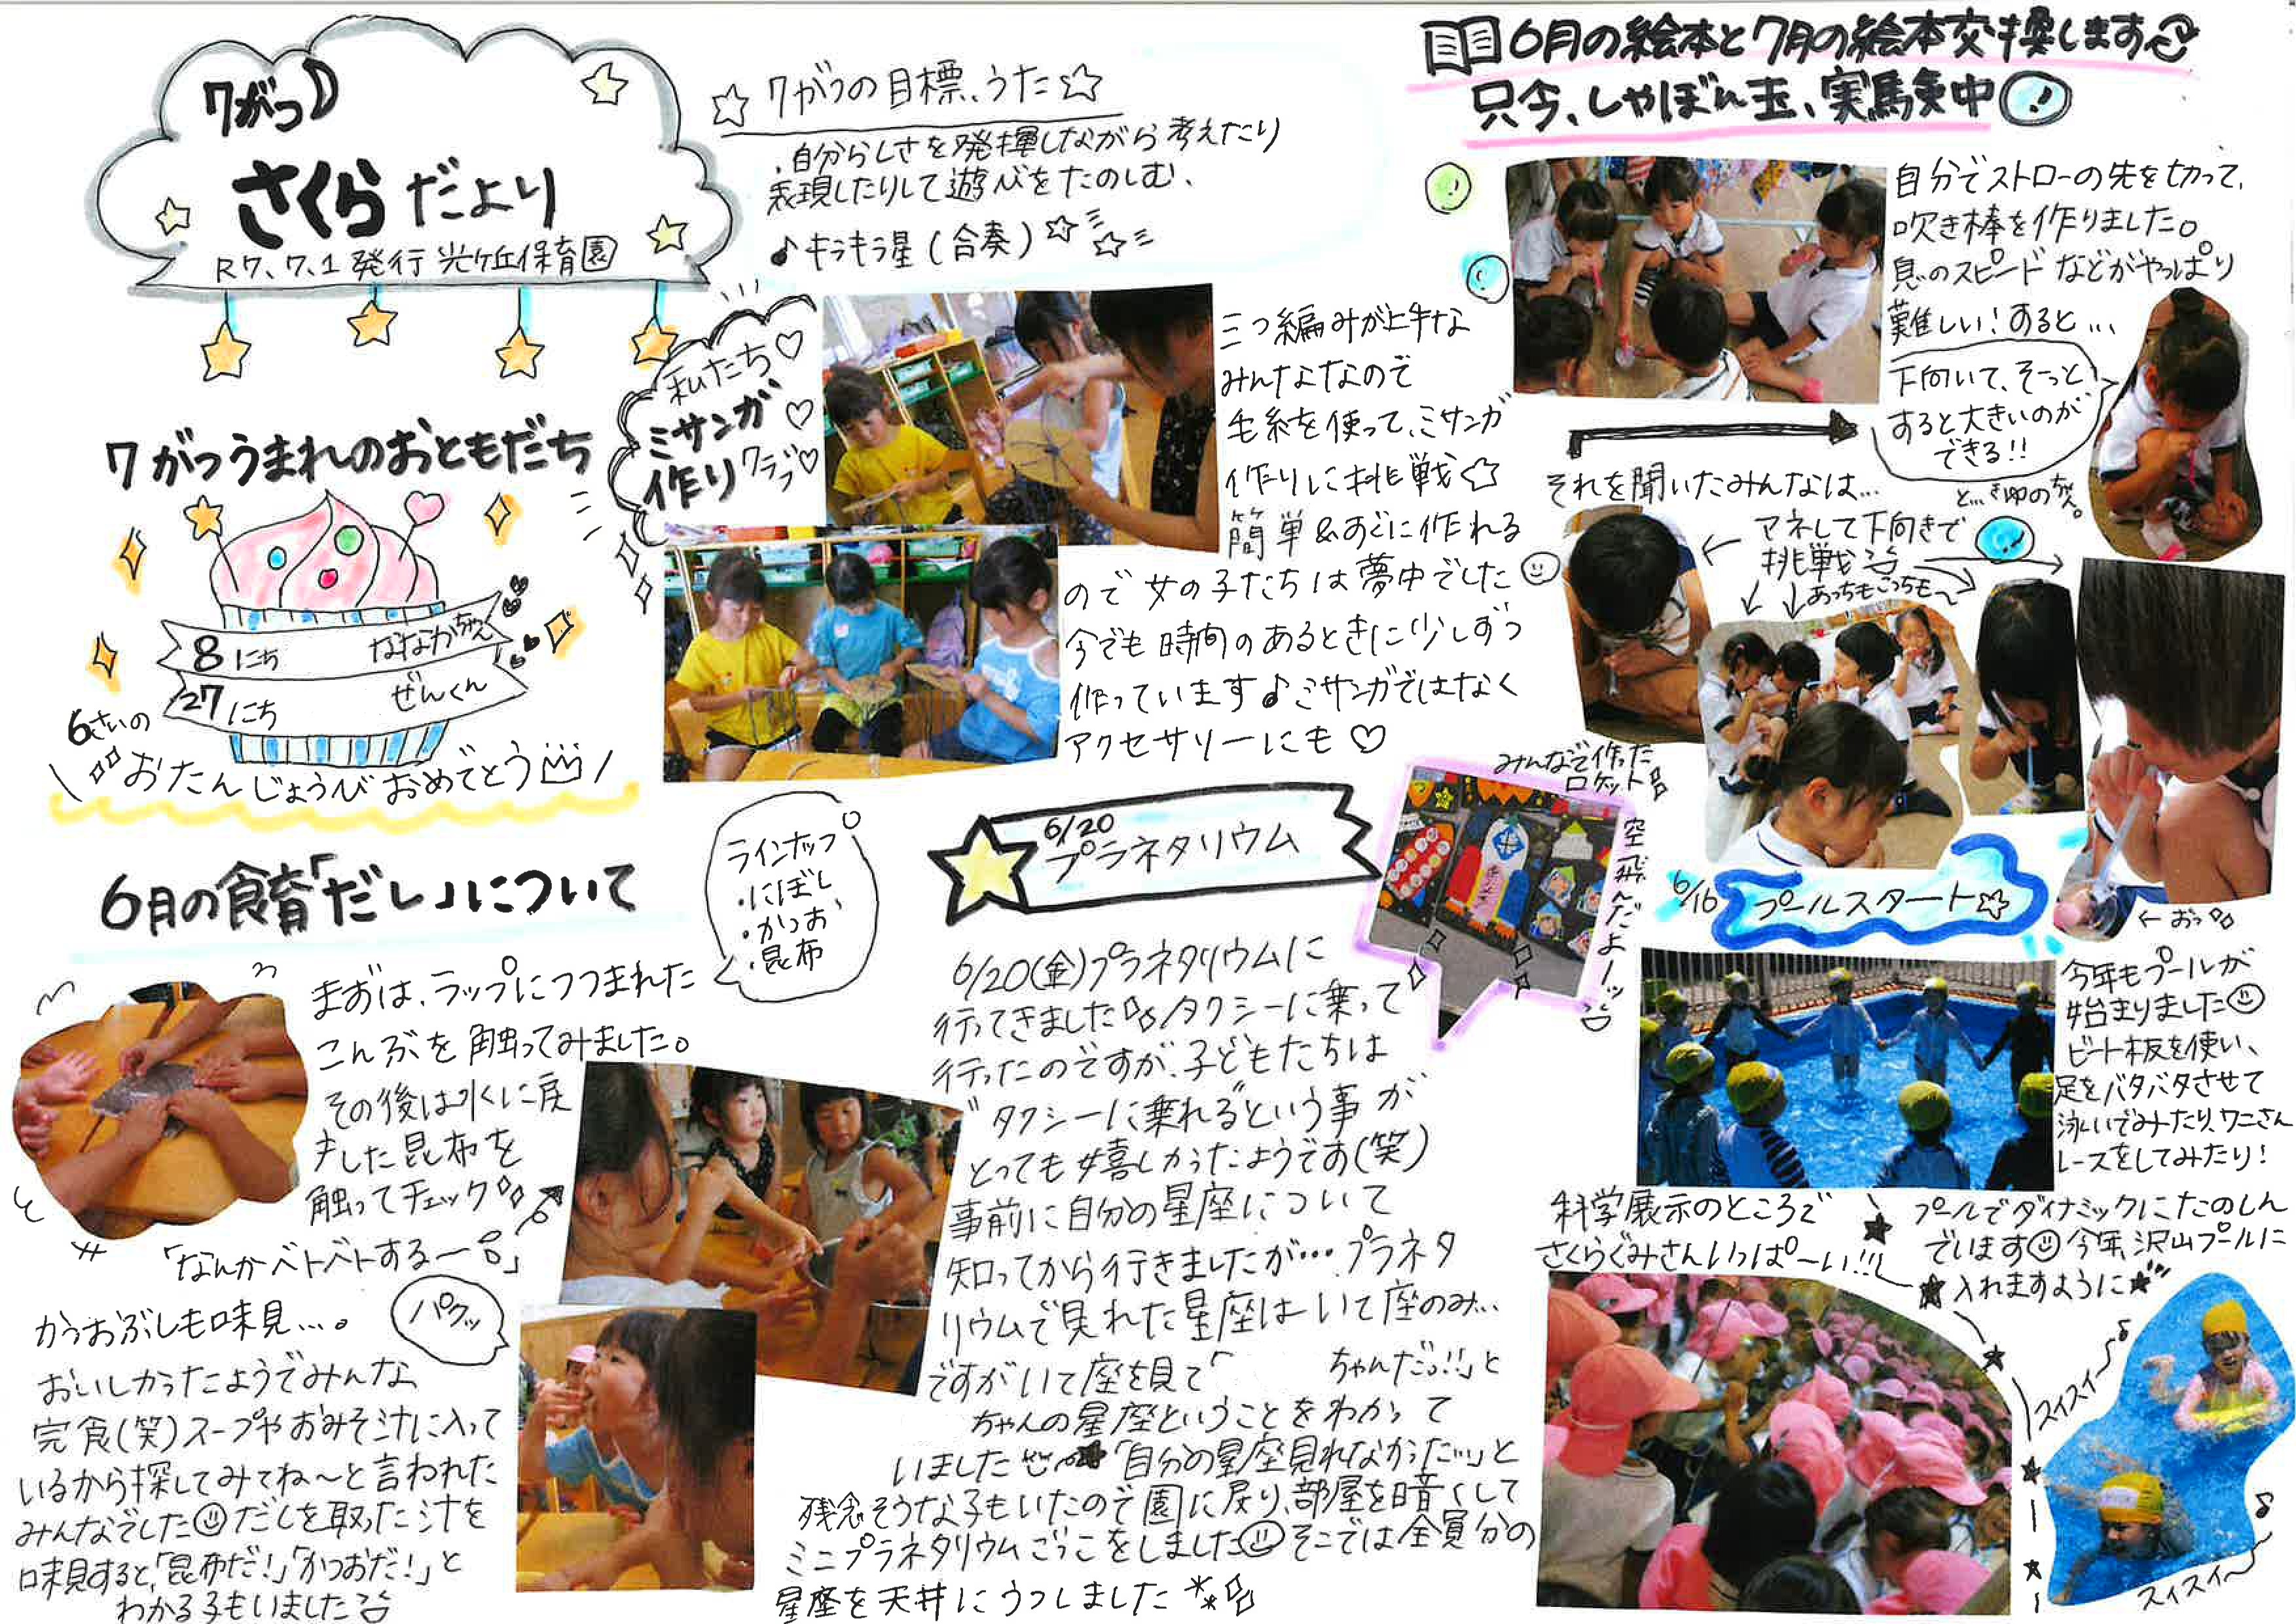 7がつ♪
さくらだより
R7、7、1 発行 光ケ丘保育園
☆7がつの目標、うた☆
・自分らしさを発揮しながら考えたり
表現したりして遊びをたのしむ、
♪キラキラ星(合奏)☆☆
7がつうまれのおともだち
8にち ななかちゃん
27にち ぜんくん
6さいの
おたんじょうびおめでとう
私たち♡
ミサンガ♡
作りクラブ♡
三つ編みが上手な
みんななので
毛糸を使って、ミサンガ
作りに挑戦☆
簡単&すぐに作れる
ので女の子たちは夢中でした
今でも時間のあるときに少しずつ
作っています♪ミサンガではなく
アクセサリーにも♡
6月の絵本と7月の絵本交換します
只今、しゃぼん玉、実験中!
自分でストローの先を切って、
吹き棒を作りました。
息のスピードなどがやっぱり
難しい!すると…
下向いて、そーっと
すると大きいのが
できる!!
と…きゆのちゃん。
それを聞いたみんなは…
マネして下向きで
挑戦
あっちもこっちも〜
←おっ
6月の食育「だし」について
ラインナップ
・にぼし
・かつお
・昆布
まずは、ラップにつつまれた
こんぶを触ってみました。
その後は水に戻
した昆布を
触ってチェック
「なんかベトベトするー」
かつおぶしも味見…。
パクッ
おいしかったようでみんな
完食(笑)スープやおみそ汁に入って
いるから探してみてね〜と言われた
みんなでした だしを取った汁を
味見すると、「昆布だ!」「かつおだ!」と
わかる子もいました
6/20
プラネタリウム
みんなで作った
ロケット
空飛んだよーッ
6/20(金)プラネタリウムに
行ってきました タクシーに乗って
行ったのですが、子どもたちは
"タクシーに乗れる"という事が
とっても嬉しかったようです(笑)
事前に自分の星座について
知ってから行きましたが…プラネタ
リウムで見れた星座はいて座のみ…
ですがいて座を見て「 ちゃんだっ!!」と
ちゃんの星座ということをわかって
いました「自分の星座見れなかった…」と
残念そうな子もいたので園に戻り、部屋を暗くして
ミニプラネタリウムごっこをしました そこでは全員分の
星座を天井にうつしました
6/16
プールスタート☆
今年もプールが
始まりました
ビート板を使い、
足をバタバタさせて
泳いでみたり、ワニさん
レースをしてみたり!
プールでダイナミックにたのしん
でいます 今年、沢山プールに
★入れますように★
科学展示のところで
さくらぐみさんいっぱーい!!
スイスイ〜♪
スイスイ〜♪